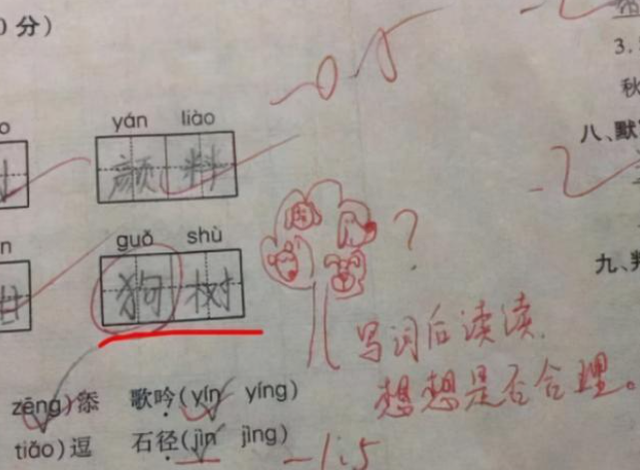 0分)
-0.5
3.
秋
yán liào
颜料
八、默
guǒ shù
狗树
?
九、判
写词后读读,
想想是否合理。
zēng)添 歌吟(yín yíng)
tiāo)逗 石径(jìn jìng)
-1.5